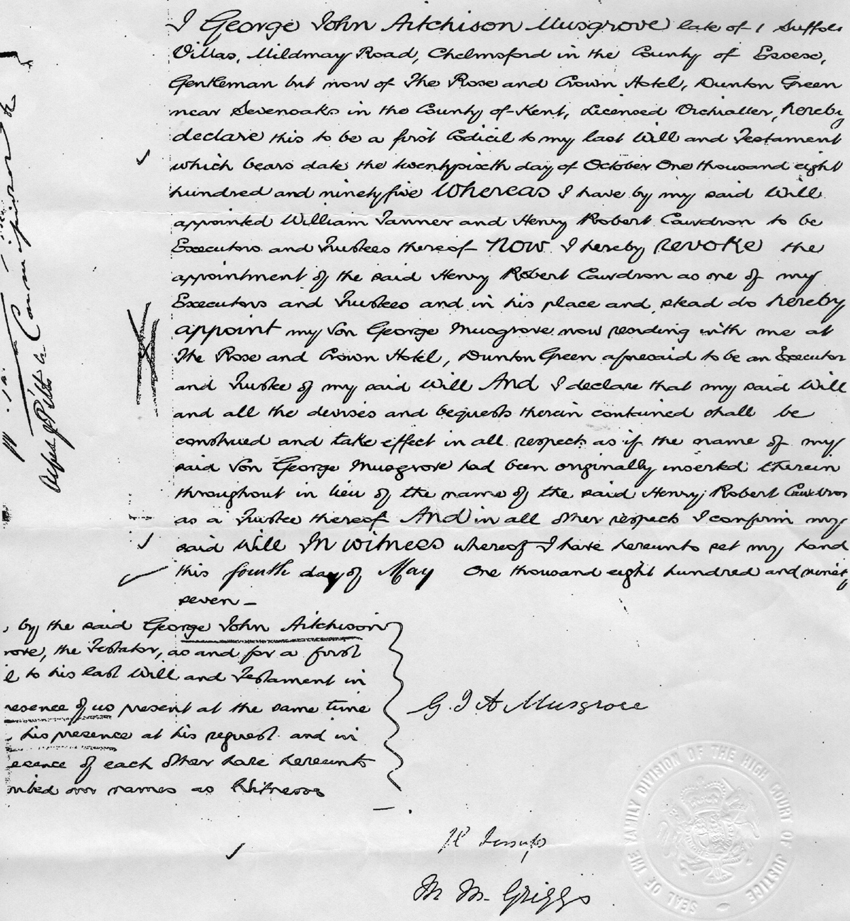 I George John Aitchison Musgrove late of 1 Suffolk
Villas, Mildmay Road, Chelmsford in the County of Essex,
Gentleman but now of The Rose and Crown Hotel, Dunton Green
near Sevenoaks in the County of Kent, Licensed Victualler, hereby
declare this to be a first Codicil to my last Will and Testament
which bears date the twentysixth day of October One thousand eight
hundred and ninetyfive Whereas I have by my said Will
appointed William Tanner and Henry Robert Cawdron to be
Executors and Trustees thereof Now I hereby revoke the
appointment of the said Henry Robert Cawdron as one of my
Executors and Trustees and in his place and stead do hereby
appoint my Son George Musgrove now residing with me at
The Rose and Crown Hotel, Dunton Green aforesaid to be an Executor
and Trustee of my said Will And I declare that my said Will
and all the devises and bequests therein contained shall be
construed and take effect in all respects as if the name of my
said Son George Musgrove had been originally inserted therein
throughout in lieu of the name of the said Henry Robert Cawdron
as a Trustee thereof And in all other respects I confirm my
said Will In witness whereof I have hereunto set my hand
this fourth day of May One thousand eight hundred and ninety
seven —
, by the said George John Aitchison
rove, the Testator, as and for a first
l to his last Will and Testament in
resence of us present at the same time
his presence at his request and in
esence of each other have hereunto
ribed our names as Witnesses
G. J A Musgrove
M M Griggs
SEAL OF THE FAMILY DIVISION OF THE HIGH COURT OF JUSTICE